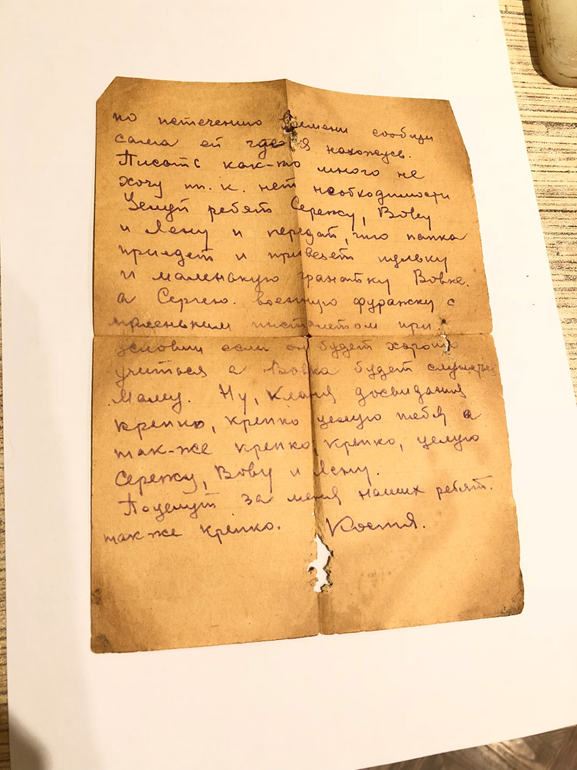 по истечению времени сообщи
сама ей где я нахожусь.
Писать как-то много не
хочу т.к. нет необходимости
Целуй ребят Сережу, Вову
и Лену и передай, что папка
приедет и привезет
и маленькую гранатку Вовке.
а Сергею. военную фуражку с
маленьким пистолетом при
условии если он будет хорошо
учиться а Вовка будет слушать
маму. Ну, Клава досвидания
крепко, крепко целую тебя а
так-же крепко крепко, целую
Сережу, Вову и Лену.
Поцелуй за меня наших ребят.
также крепко. Костя.